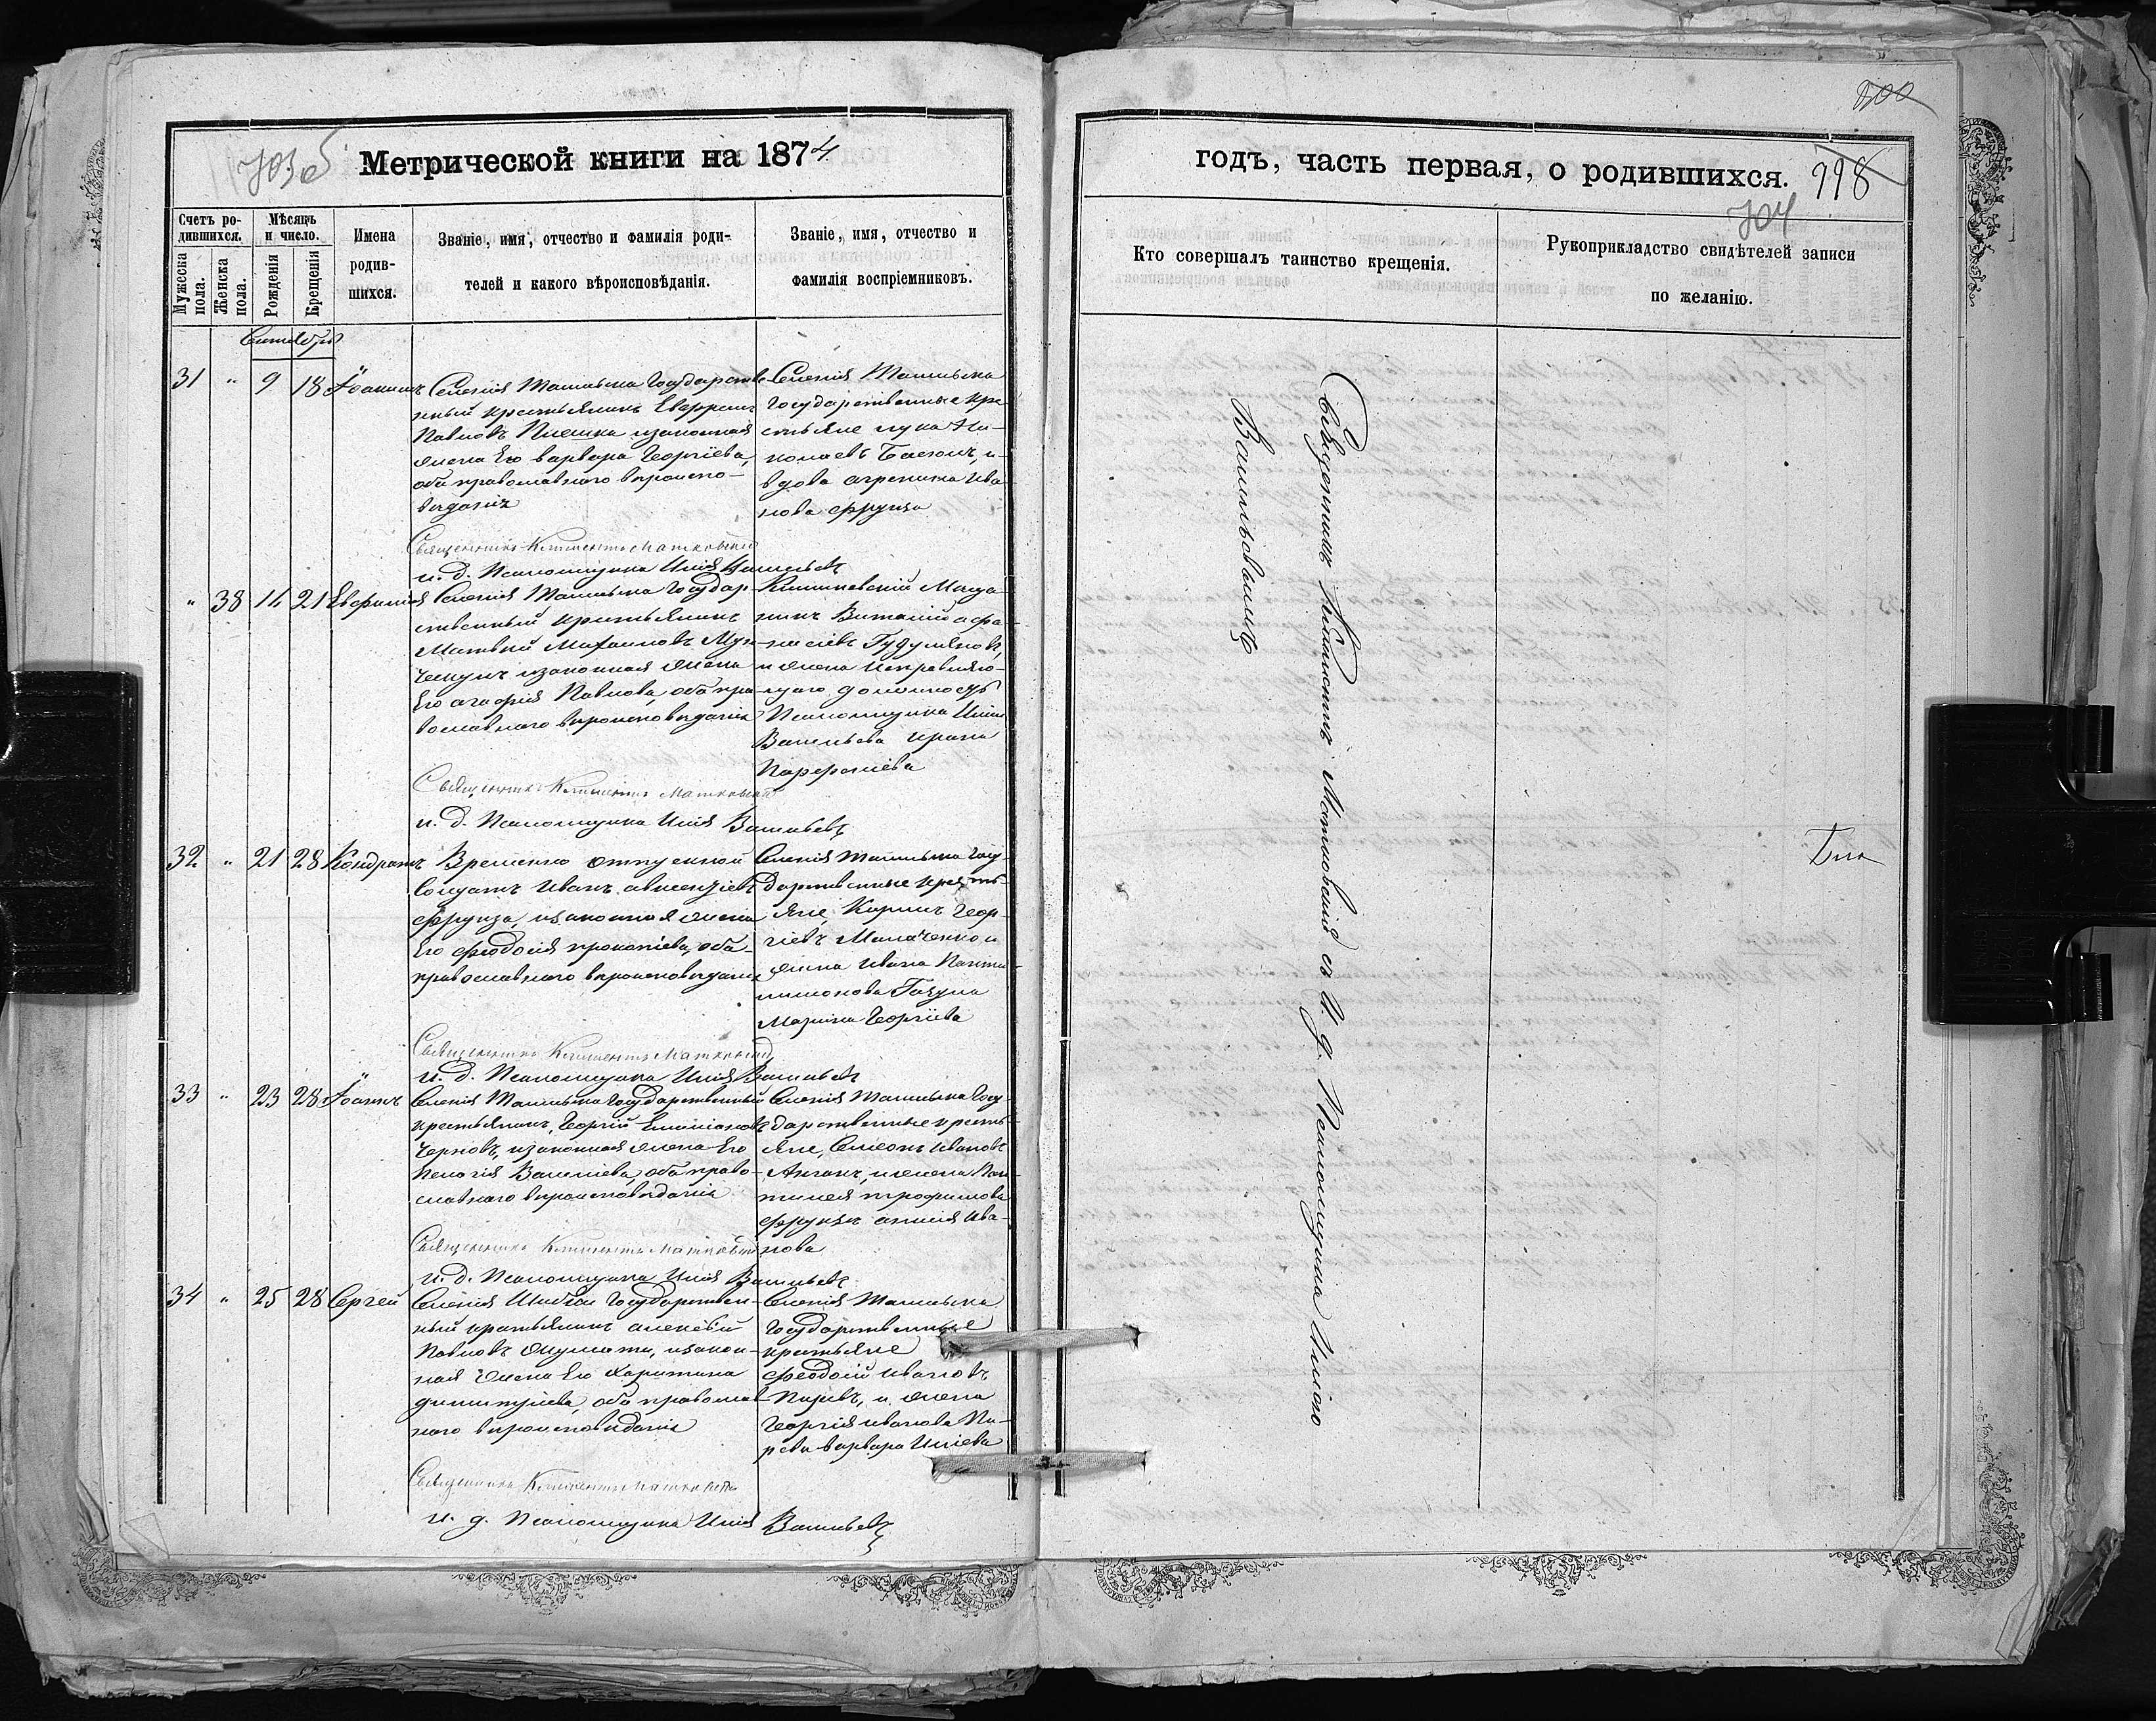 703 об
Метрической книги на 1874
Счетъ ро-
дившихся.
Мѣсяцъ
и число.
Имена
родив-
шихся.
Званіе, имя, отчество и фамилія роди-
телей и какого вѣроисповѣданія.
Званіе, имя, отчество и
фамилія воспріемниковъ.
Мужеска
пола.
Женска
пола.
Рожденія
Крещенія
Сентябрь
31 " 9 18 Іоакимъ
Селенія Ташлыка Государстве-
нный крестьянинъ
Павловъ Плешка изаконная
жена Его Варвара Георгіева,
оба православнаго вѣроиспо-
вѣданія
Селенія Ташлыка
Государственные кре
стьяне лука Ни-
колаевъ и
вдова агрепина Ива
нова Фрунза
Священникъ Климентъ Матковскій
и. д. Псаломщика Илія Васильевъ
" 38 14 21 Евфимія
Селенія Ташлыка Государ
ственный крестьянинъ
Матвей Михаиловъ
изаконная жена
Его агафія Павлова, оба пра
вославнаго вѣроисповѣданія
Кишиневскій Меща
нинъ Виталій афа
насіевъ
и жена Исправляю-
щаго должность
Псаломщика Иліи
Васильева Ирина
Парфеніева
Священникъ Климентъ Матковскій
и. д. Псаломщика Илія Васильевъ
32 " 21 28 Кондратъ
Временно отпускной
солдатъ Иванъ авксентіевъ
Фрунза, изаконная жена
Его Феодосія прокопіева, оба
православнаго вѣроисповѣданія
Селенія Ташлыка Госу
дарственные кресть-
яне, Кирилъ Геор-
гіевъ Малаченко и
жена Ивана Панти
лимонова
Марина Георгіева
Священникъ Климентъ Матковскій
и. д. Псаломщика Илія Васильевъ
33 " 23 28 Іоаннъ
Селенія Ташлыка Государственный
крестьянинъ, Георгій
Черновъ, изаконная жена Его
Пелагія Василіева, оба право-
славнаго вѣроисповѣданія
Селенія Ташлыка Госу
дарственные кресть-
яне, Симеонъ Ивановъ
и жена Пан
тилея трофимова
Фрунзы Ива-
нова
Священникъ Климентъ Матковскій
и. д. Псаломщика Илія Васильевъ
34 " 25 28 Сергей
Селенія Государствен-
ный крестьянинъ алексѣй
Павловъ изакон-
ная жена Его Харитина
димитріева, оба православ
наго вѣроисповѣданія
Селенія Ташлыка
Государственные
крестьяне
Феодосій Ивановъ
и жена
Георгія Иванова
Варвара Иліева
Священникъ Климентъ Матковскій
и. д. Псаломщика Илія Васильевъ
500
годъ, часть первая, о родившихся.
998
704
Кто совершалъ таинство крещенія.
Рукоприкладство свидѣтелей записи
по желанію.
Священникъ Климентъ Матковскій съ И. д. Псаломщика Иліею
Васильевымъ